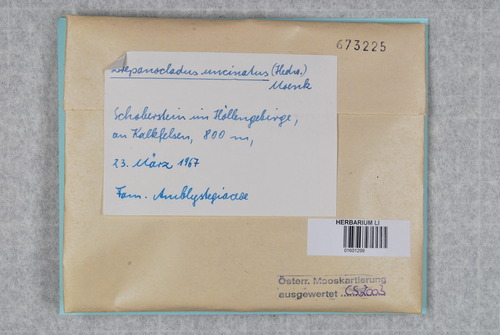 673225
Drepanocladus uncinatus (Hedw.)
Moenk
Schoberstein im Höllengebirge,
an Kalkfelsen, 800 m,
23. März 1967
Fam. Amblystegiaceae
HERBARIUM LI
Österr. Mooskartierung
ausgewertet